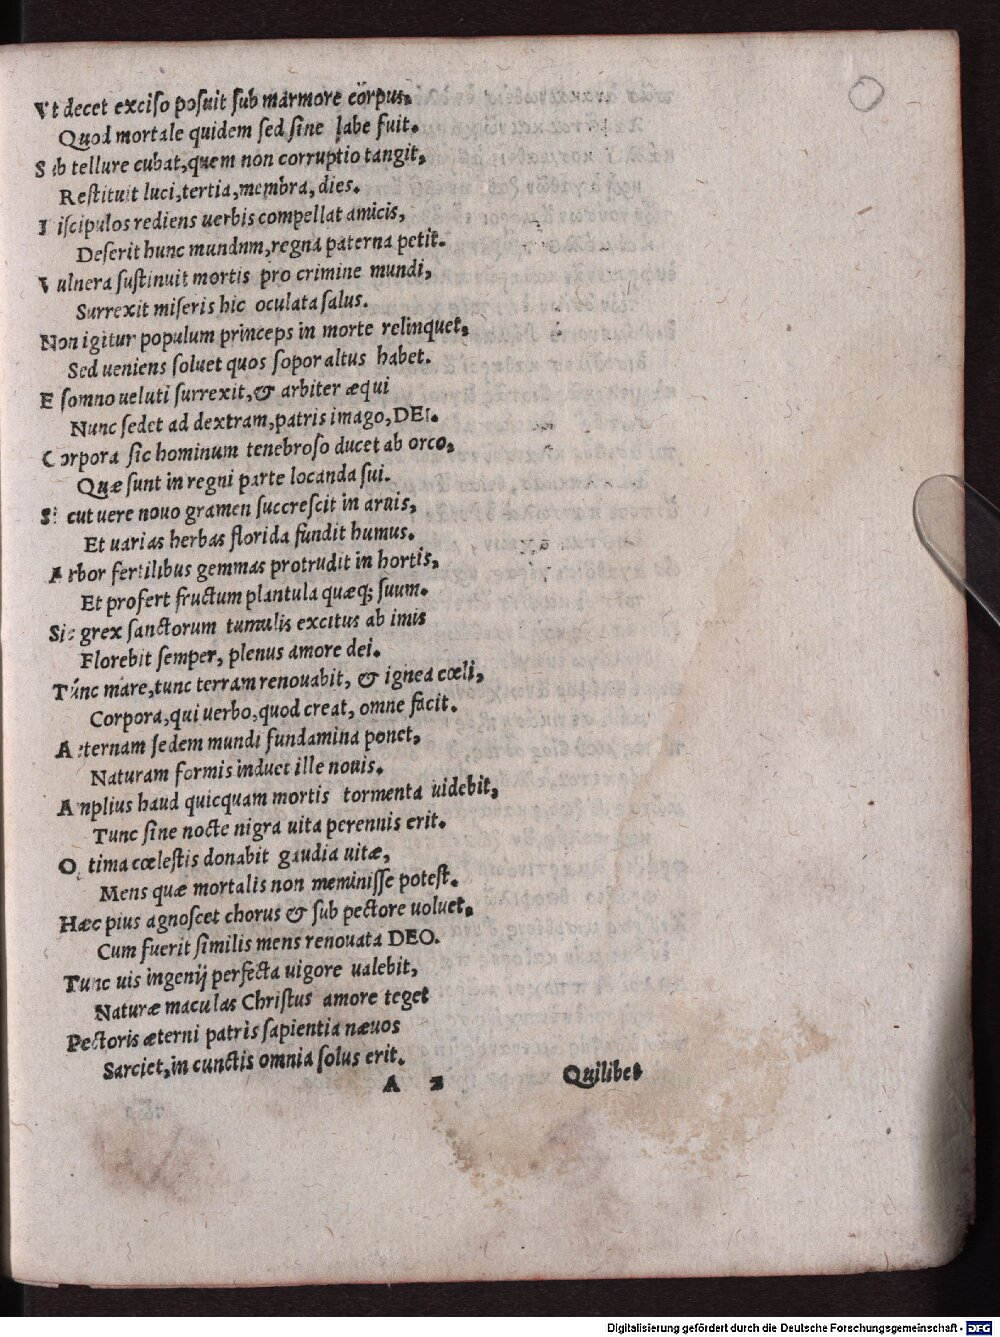 Vt decet exciſo poſuit ſub marmore corpus,
Quod mortale quidem ſed ſine labe fuit.
Sub tellure cubat, quem non corruptio tangit,
Reſtituit luci, tertia, membra, dies.
Diſcipulos rediens uerbis compellat amicis,
Deſerit hunc mundnm, regna paterna petit.
Vulnera ſuſtinuit mortis pro crimine mundi,
Surrexit miſeris hic oculata ſalus.
Non igitur populum princeps in morte relinquet,
Sed ueniens ſoluet quos ſopor altus habet.
E ſomno ueluti ſurrexit, & arbiter æqui
Nunc ſedet ad dextram, patris imago, DEI.
Corpora ſic hominum tenebroſo ducet ab orco,
Quæ ſunt in regni parte locanda ſui.
Sicut uere nouo gramen ſuccreſcit in aruis,
Et uarias herbas florida fundit humus.
Arbor fertilibus gemmas protrudit in hortis,
Et profert fructum plantula quæq; ſuum.
Sic grex ſanctorum tumulis excitus ab imis
Florebit ſemper, plenus amore dei.
Tunc mare, tunc terram renouabit, & ignea cœli,
Corpora, qui uerbo, quod creat, omne facit.
Aeternam ſedem mundi fundamina ponet,
Naturam formis induet ille nouis.
Amplius haud quicquam mortis tormenta uidebit,
Tunc ſine nocte nigra uita perennis erit.
Optima cœleſtis donabit gaudia uitæ,
Mens quæ mortalis non meminiſſe poteſt.
Hæc pius agnoſcet chorus & ſub pectore uoluet,
Cum fuerit ſimilis mens renouata DEO.
Tunc uis ingenij perfecta uigore ualebit,
Naturæ maculas Chriſtus amore teget
Pectoris æterni patris ſapientia næuos
Sarciet, in cunctis omnia ſolus erit.
A 2 Quilibet
Digitalisierung gefördert durch die Deutsche Forschungsgemeinschaft - DFG